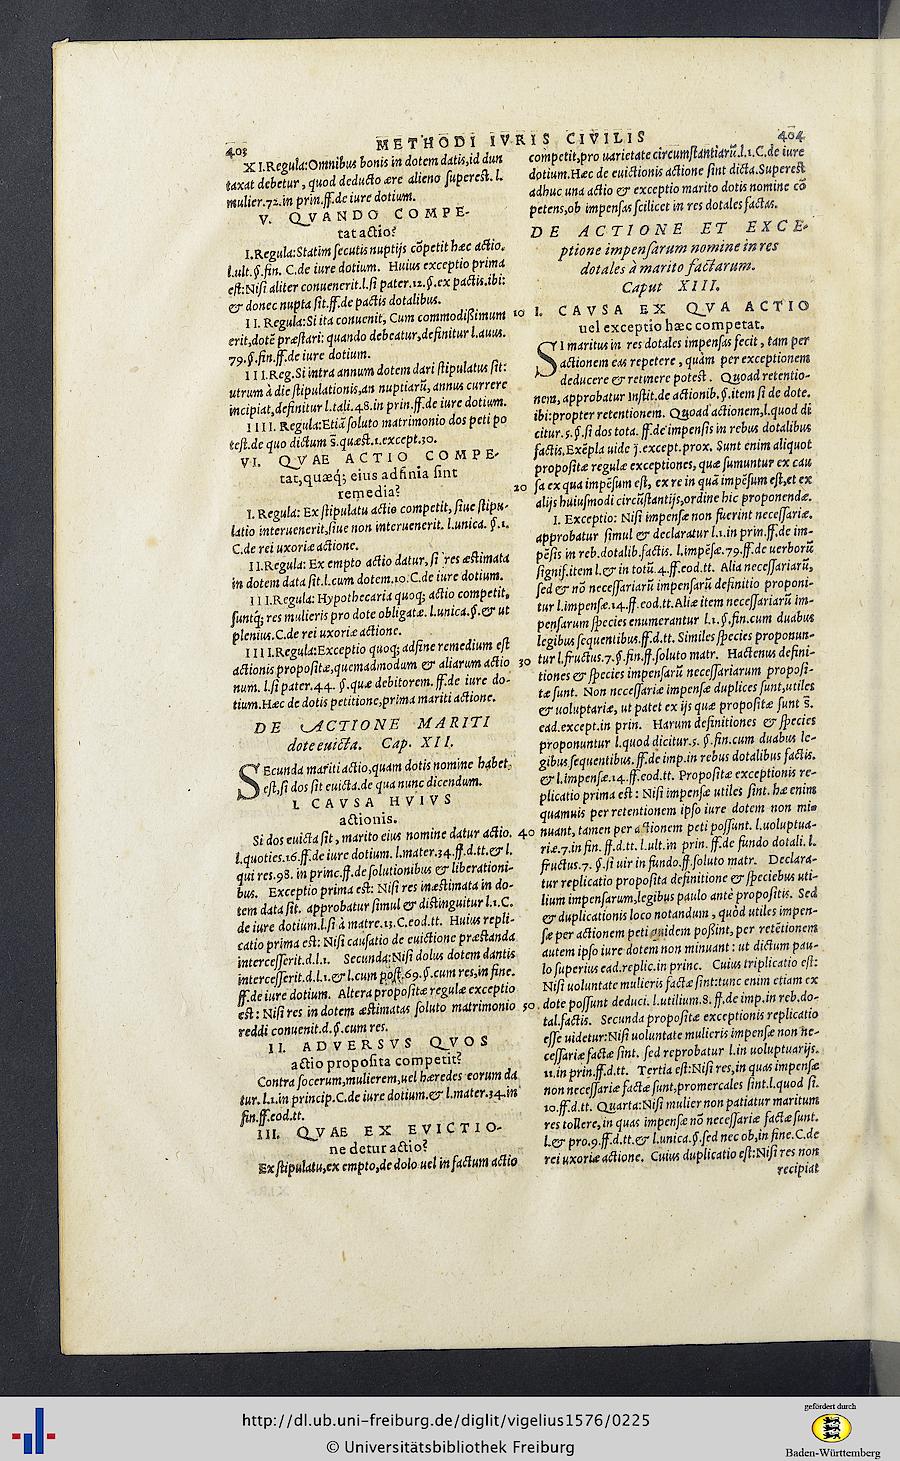 403 METHODI IVRIS CIVILIS 404
XI.Regula:Omnibus bonis in dotem datis,id dun
taxat debetur, quod deducto ære alieno superest.l.
mulier.72.in prin.ff.de iure dotium.
V. QVANDO COMPE-
tat actio?
I.Regula:Statim secutis nuptijs cõpetit hæc actio.
l.ult.§.fin. C.de iure dotium. Huius exceptio prima
est:Nisi aliter conuenerit.l.si pater.12.§.ex pactis.ibi:
& donec nupta sit.ff.de pactis dotalibus.
II. Regula:Si ita conuenit, Cum commodißimum
erit,dotẽ præstari: quando debeatur,definitur l.auus.
79.§.fin.ff.de iure dotium.
III.Reg.Si intra annum dotem dari stipulatus sit:
utrum à die stipulationis,an nuptiarũ, annus currere
incipiat,definitur l.tali.48.in prin.ff.de iure dotium.
IIII. Regula:Etiã soluto matrimonio dos peti po
test.de quo dictum s̃.quæst.1.except.30.
VI. QVAE ACTIO COMPE-
tat,quæq; eius adfinia sint
remedia?
I. Regula: Ex stipulatu actio competit, siue stipu-
latio interuenerit,siue non interuenerit. l.unica. §.1.
C.de rei uxoriæ actione.
II.Regula: Ex empto actio datur, si res æstimata
in dotem data sit.l.cum dotem.10.C.de iure dotium.
III.Regula: Hypothecaria quoq; actio competit,
suntq́; res mulieris pro dote obligatæ. l.unica.§.& ut
plenius.C.de rei uxoriæ actione.
IIII.Regula:Exceptio quoq; adfine remedium est
actionis propositæ,quemadmodum & aliarum actio
num. l.si pater.44. §.quæ debitorem. ff.de iure do-
tium.Hæc de dotis petitione,prima mariti actione.
DE ACTIONE MARITI
dote euicta. Cap. XII.
SEcunda mariti actio,quam dotis nomine habet,
est,si dos sit euicta.de qua nunc dicendum.
I. CAVSA HVIVS
actionis.
Si dos euicta sit, marito eius nomine datur actio.
l.quoties.16.ff.de iure dotium. l.mater.34.ff.d.tt.& l.
qui res.98. in princ.ff.de solutionibus & liberationi-
bus. Exceptio prima est: Nisi res inæstimata in do-
tem data sit. approbatur simul & distinguitur l.1.C.
de iure dotium.l.si à matre.13.C.eod.tt. Huius repli-
catio prima est: Nisi causatio de euictione præstanda
intercesserit.d.l.1. Secunda:Nisi dolus dotem dantis
intercesserit.d.l.1.& l.cum post.69.§.cum res,in fine.
ff.de iure dotium. Altera propositæ regulæ exceptio
est: Nisi res in dotem æstimatas soluto matrimonio
reddi conuenit.d.§.cum res.
II. ADVERSVS QVOS
actio proposita competit?
Contra socerum,mulierem,uel hæredes eorum da
tur.l.1.in princip.C.de iure dotium.& l.mater.34.in
fin.ff.eod.tt.
III. QVAE EX EVICTIO-
ne detur actio?
Ex stipulatu,ex empto,de dolo uel in factum actio
competit,pro uarietate circumstantiarũ.l.1.C.de iure
dotium.Hæc de euictionis actione sint dicta.Superest
adhuc una actio & exceptio marito dotis nomine cõ
petens,ob impensas scilicet in res dotales factas.
DE ACTIONE ET EXCE-
ptione impensarum nomine in res
dotales à marito factarum.
Caput XIII.
10 I. CAVSA EX QVA ACTIO
uel exceptio hæc competat.
SI maritus in res dotales impensas fecit, tam per
actionem eas repetere, quàm per exceptionem
deducere & retinere potest. Quoad retentio-
nem, approbatur Instit.de actionib.§.item si de dote.
ibi:propter retentionem. Quoad actionem,l.quod di
citur.5.§.si dos tota. ff.de impensis in rebus dotalibus
factis.Exẽpla uide j̃.except.prox. Sunt enim aliquot
propositæ regulæ exceptiones, quæ sumuntur ex cau
20 sa ex qua impẽsum est, ex re in quã impẽsum est,et ex
alijs huiusmodi circũstantijs,ordine hic proponendæ.
I. Exceptio: Nisi impensæ non fuerint necessariæ.
approbatur simul & declaratur l.1.in prin.ff.de im-
pẽsis in reb.dotalib.factis. l.impẽsæ.79.ff.de uerborũ
signif.item l.& in totũ.4.ff.eod.tt. Alia necessariarũ,
sed & nõ necessariarũ impensarũ definitio proponi-
tur l.impensæ.14.ff.eod.tt.Aliæ item necessariarũ im-
pensarum species enumerantur l.1.§.fin.cum duabus
legibus sequentibus.ff.d.tt. Similes species proponun-
30 tur l.fructus.7.§.fin.ff.soluto matr. Hactenus defini-
tiones & species impensarũ necessariarum proposi-
tæ sunt. Non necessariæ impensæ duplices sunt,utiles
& uoluptariæ, ut patet ex ijs quæ propositæ sunt s̃.
ead.except.in prin. Harum definitiones & species
proponuntur l.quod dicitur.5. §.fin.cum duabus le-
gibus sequentibus.ff.de imp.in rebus dotalibus factis.
& l.impensæ.14.ff.eod.tt. Propositæ exceptionis re-
plicatio prima est: Nisi impensæ utiles sint. hæ enim
quamuis per retentionem ipso iure dotem non mi-
40 nuant, tamen per actionem peti possunt. l.uoluptua-
riæ.7.in fin. ff.d.tt. l.ult.in prin. ff.de fundo dotali. l.
fructus.7. §.si uir in fundo.ff.soluto matr. Declara-
tur replicatio proposita definitione & speciebus uti-
lium impensarum,legibus paulo antè propositis. Sed
& duplicationis loco notandum, quòd utiles impen-
sæ per actionem peti quidem poßint, per retẽtionem
autem ipso iure dotem non minuant: ut dictum pau-
lo superius ead.replic.in princ. Cuius triplicatio est:
Nisi uoluntate mulieris factæ sint:tunc enim etiam ex
50 dote possunt deduci. l.utilium.8. ff.de imp.in reb.do-
tal.factis. Secunda propositæ exceptionis replicatio
esse uidetur:Nisi uoluntate mulieris impensæ non ne-
cessariæ factæ sint. sed reprobatur l.in uoluptuarijs.
11.in prin.ff.d.tt. Tertia est:Nisi res,in quas impensæ
non necessariæ factæ sunt,promercales sint.l.quod si.
10.ff.d.tt. Quarta:Nisi mulier non patiatur maritum
res tollere, in quas impensæ nõ necessariæ factæ sunt.
l.& pro.9.ff.d.tt.& l.unica.§.sed nec ob,in fine.C.de
rei uxoriæ actione. Cuius duplicatio est:Nisi res non
recipiat
http://dl.ub.uni-freiburg.de/diglit/vigelius1576/0225
© Universitätsbibliothek Freiburg
gefördert durch
Baden-Württemberg